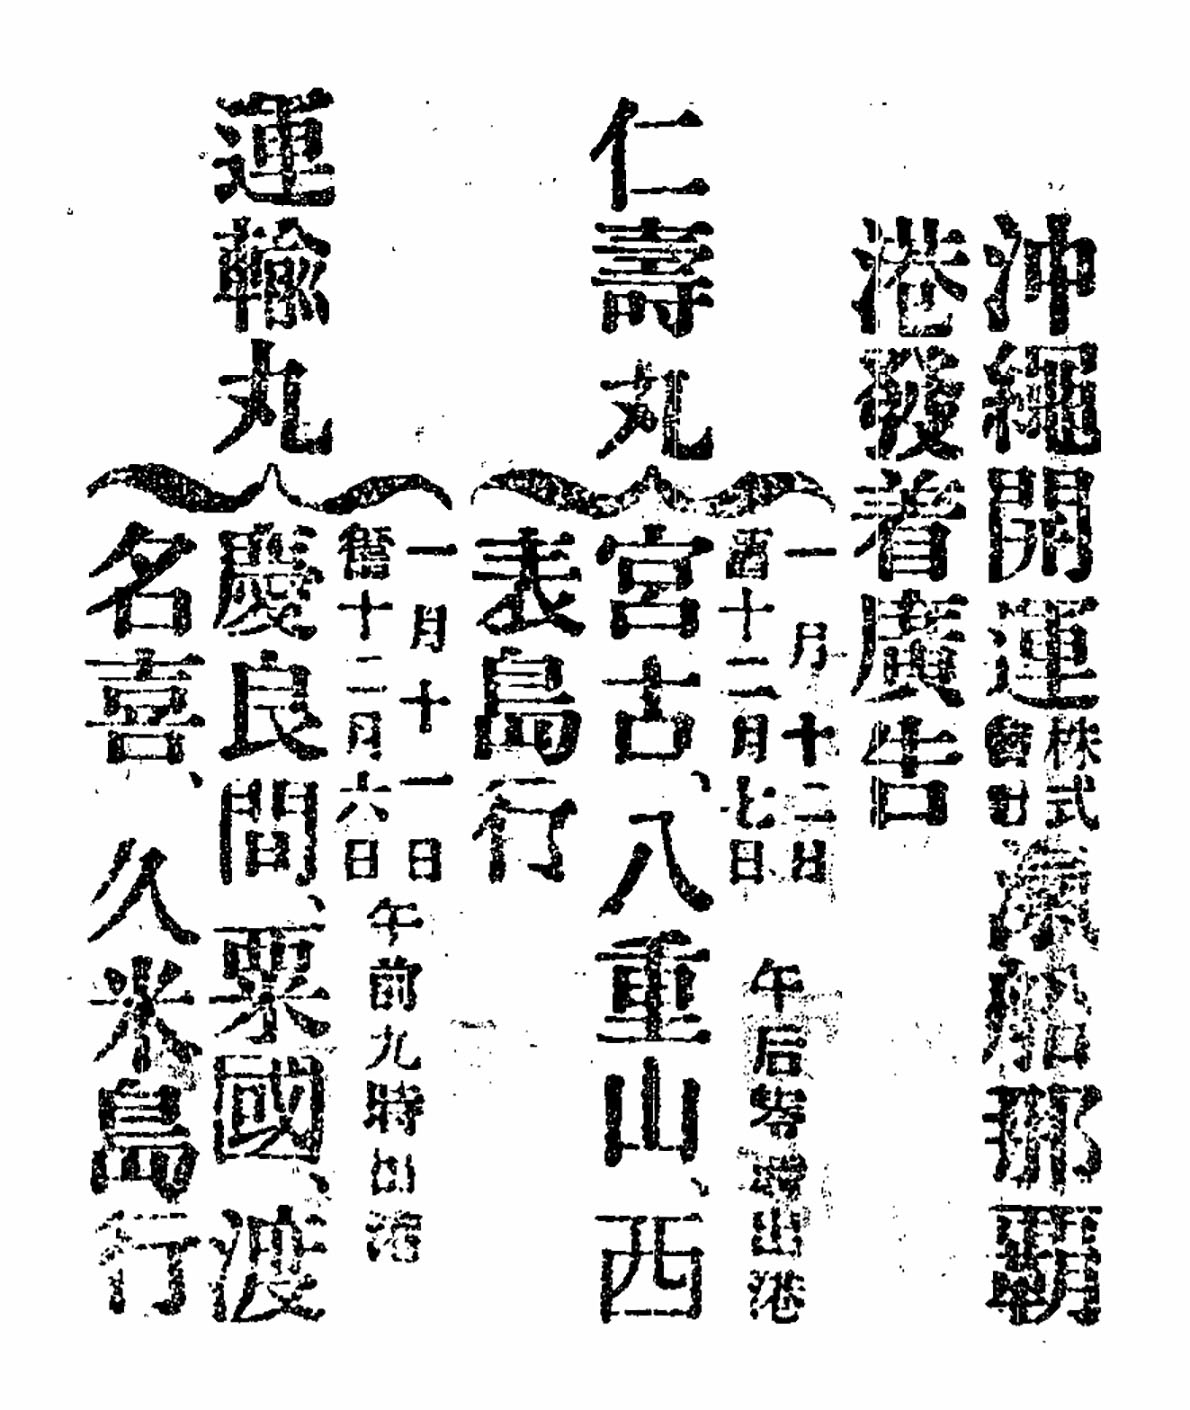 沖繩開運株式會社滊船那覇
港發着廣告
仁壽丸
一月十二日
舊十二月七日
午后時出港
宮古、八重山、西
表島行
運輸丸
一月十一日
舊十二月六日
午前九時出港
慶良間、粟國、渡
名喜、久米島行